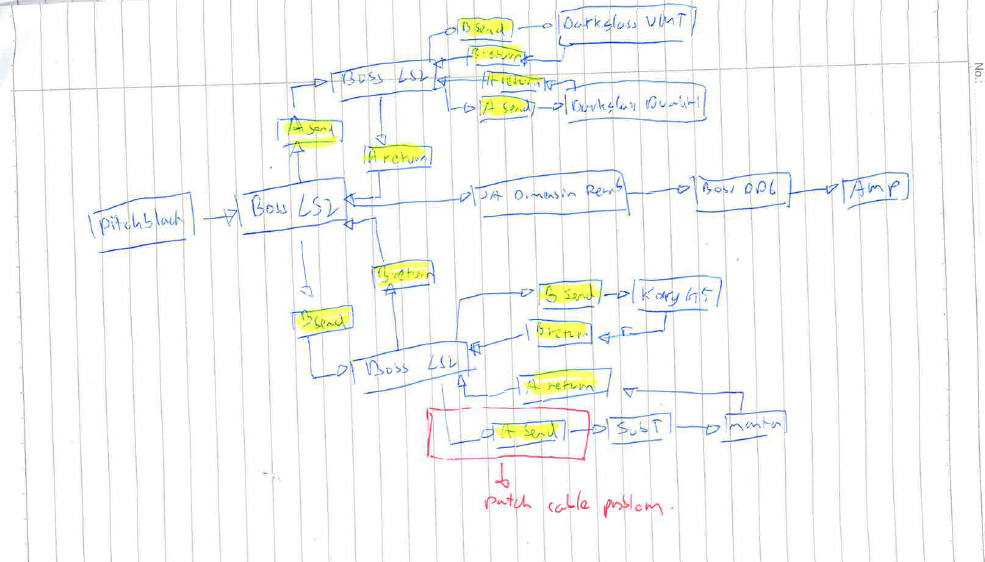 B Send
Darkglass VMT
B return
Boss LS2
A return
A Send
A Send
A return
Boss LS2
Pitchblack
Boss DD6
Amp
B return
B Send
Korg G5
B Send
B return
Boss LS2
A return
A Send
SubT
manta
patch cable problem.
No: